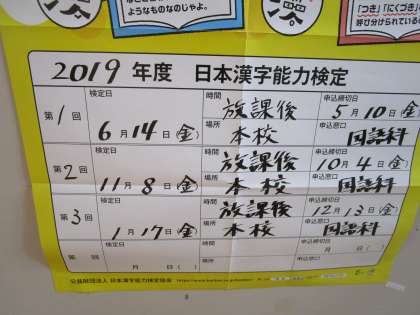 ようなものなのじゃよ。
「つき」「にくづき」
呼び分けられている
2019 年度 日本漢字能力検定
第1回 検定日 6月14日(金) 時間 放課後 場所 本校 申込締切日 5月10日(金) 申込窓口 国語科
第2回 検定日 11月8日(金) 時間 放課後 場所 本校 申込締切日 10月4日(金) 申込窓口 国語科
第3回 検定日 1月17日(金) 時間 放課後 場所 本校 申込締切日 12月13日(金) 申込窓口 国語科
第 回 検定日 月 日( ) 時間 場所 申込締切日 月 日( ) 申込窓口
公益財団法人 日本漢字能力検定協会